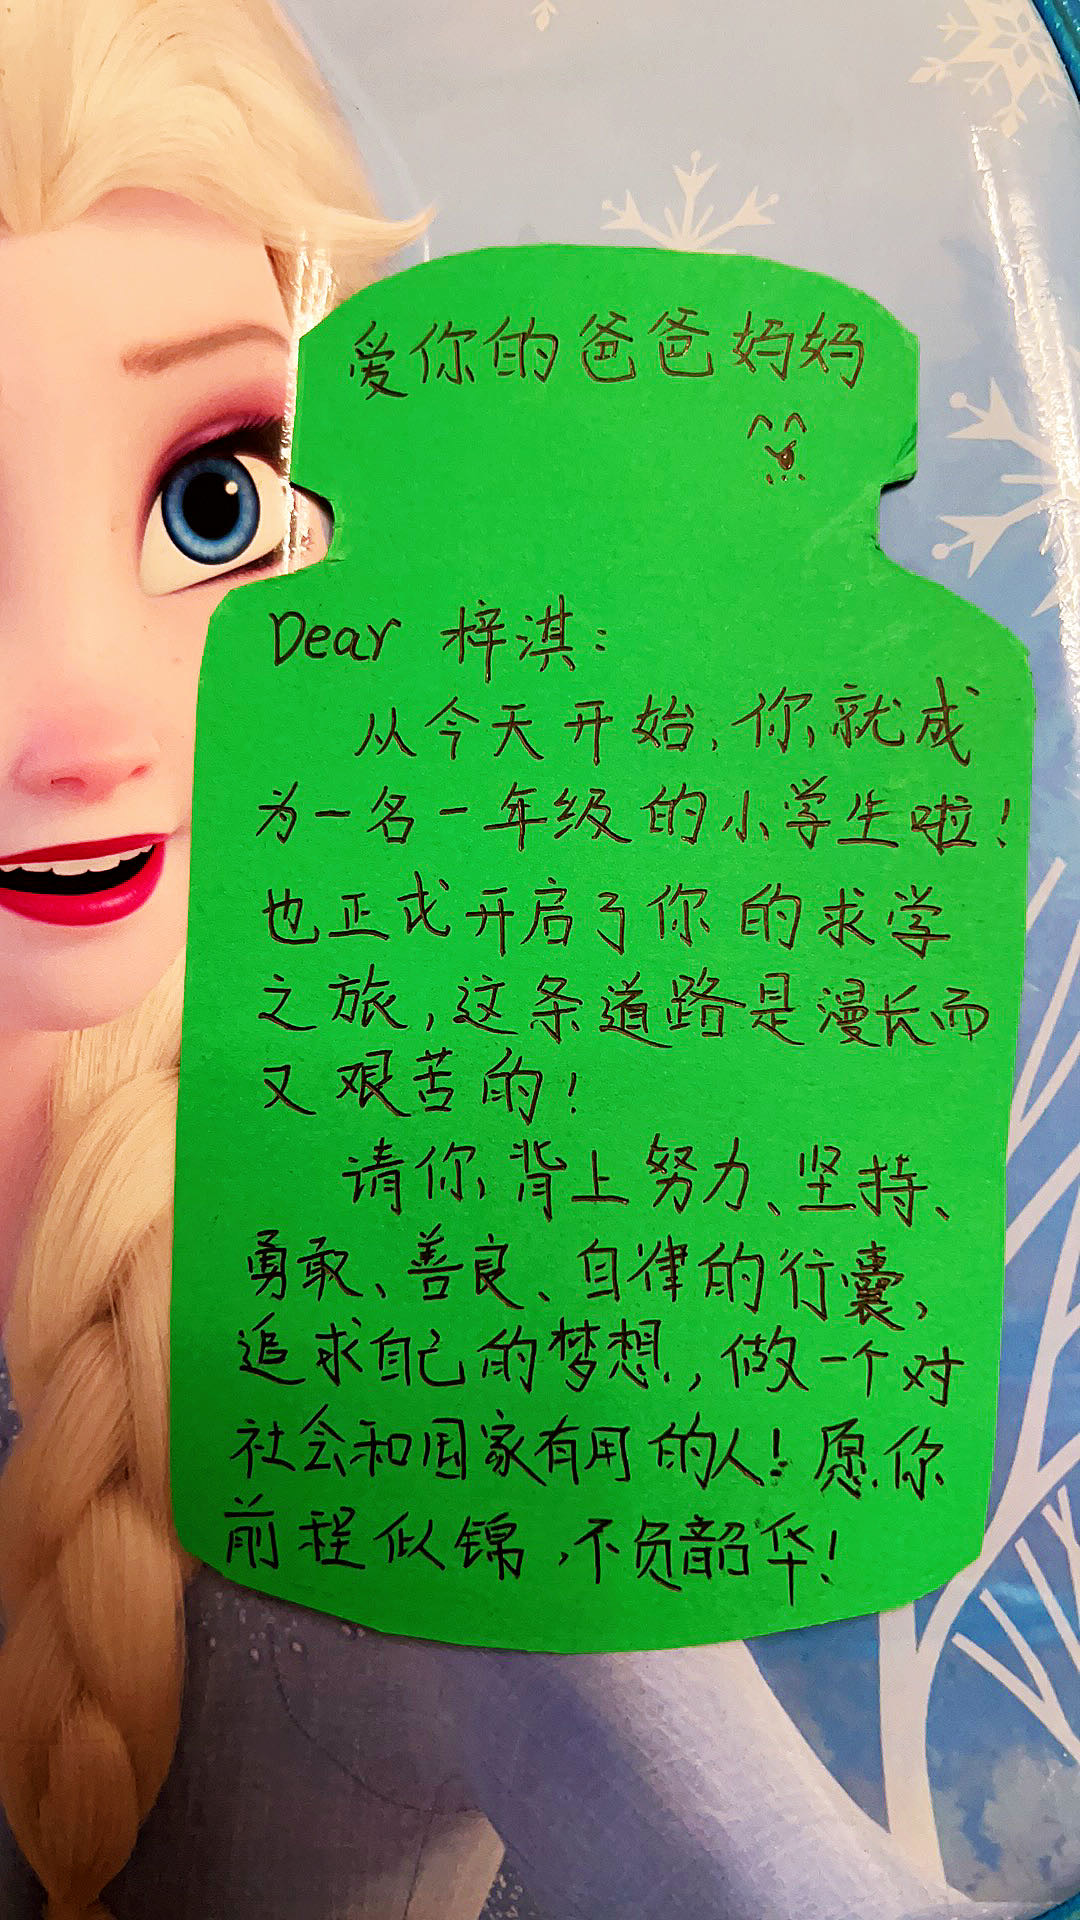 爱你的爸爸妈妈
Dear 梓淇:
从今天开始,你就成
为一名一年级的小学生啦!
也正式开启了你的求学
之旅,这条道路是漫长而
又艰苦的!
请你背上努力、坚持、
勇敢、善良、自律的行囊,
追求自己的梦想,做一个对
社会和国家有用的人!愿你
前程似锦,不负韶华!